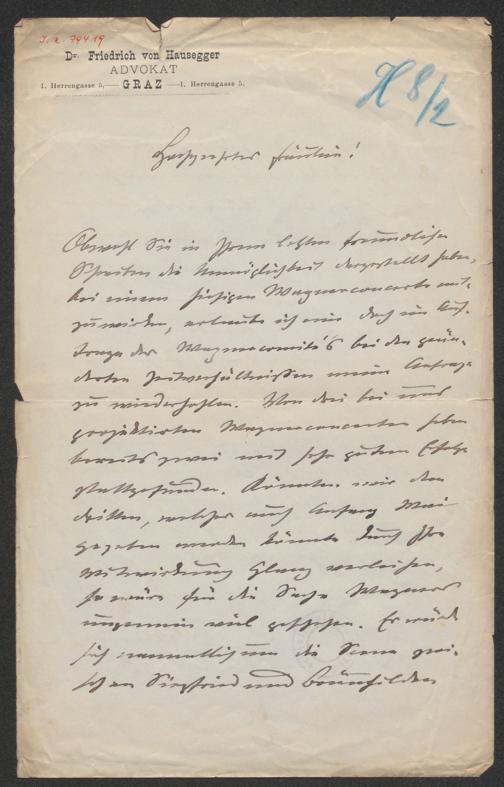 J. N. 79419
Dr. Friedrich von Hausegger
ADVOKAT
I. Herrengasse 5, GRAZ I. Herrengasse 5.
H 8/2
Hochgeehrtes Fräulein!
Obwohl Sie in Ihrem letzten freundlichen
Schreiben die Unmöglichkeit dargestellt haben,
bei einem hiesigen Wagnerconcerte mit-
zuwirken, erlaube ich mir doch im Auf-
trage des Wagnercomité's bei den geän-
derten Zeitverhältnissen meine Anfrage
zu wiederholen. Von drei bei uns
projektirten Wagnerconcerten haben
bereits zwei mit sehr gutem Erfolge
stattgefunden. Könnten wir dem
dritten, welches auch Anfang Mai
gegeben werden könnte durch Ihre
Mitwirkung Glanz verleihen,
so wäre für die Sache Wagners
ungemein viel geschehen. Es würde
sich namentlich um die Scene zwi-
schen Siegfried und Brünnhilden